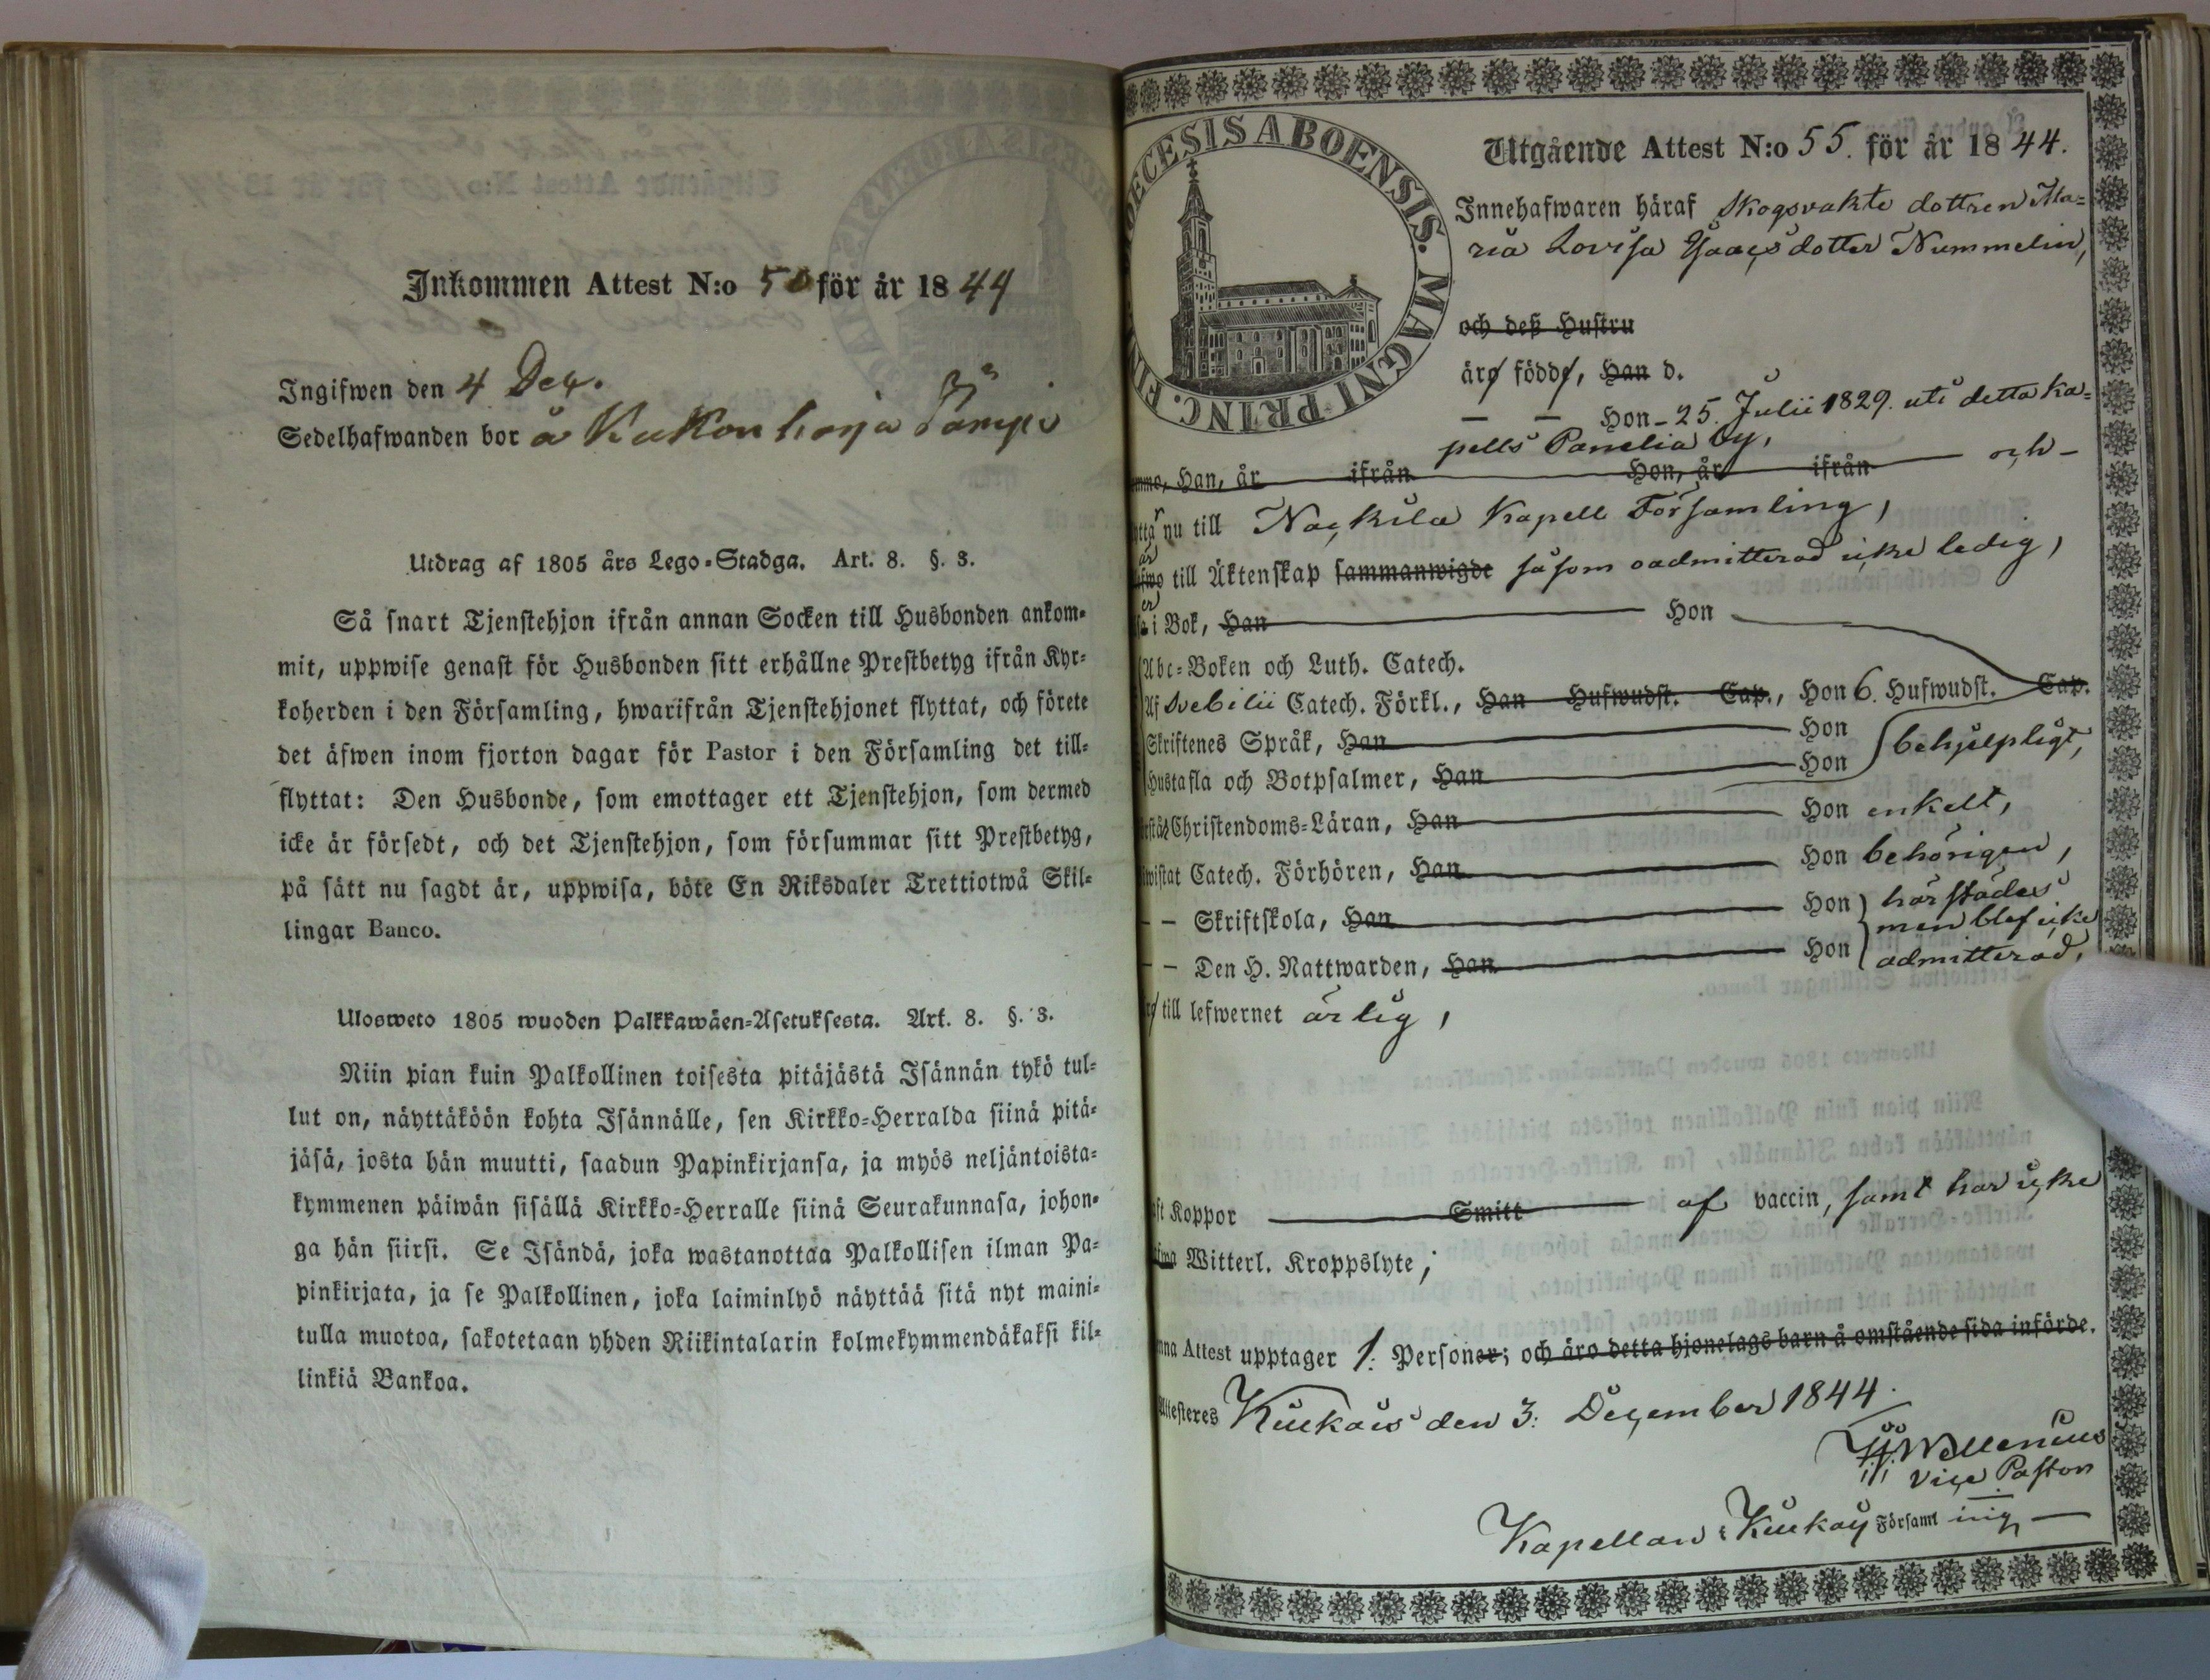 Inkommen Attest N:o 50 för år 1844
Ingifwen den 4 Dec.
Sedelhafwanden bor å Kukonharja
Utdrag af 1805 års Lego-Stadga. Art. 8. §. 3.
Så snart Tjenstehjon ifrån annan Socken till Husbonden ankom-
mit, uppwise genast för Husbonden sitt erhållne Prestbetyg ifrån Kyr-
koherden i den Församling, hwarifrån Tjenstehjonet flyttat, och förete
det äfwen inom fjorton dagar för Pastor i den Församling det till-
flyttat: Den Husbonde, som emottager ett Tjenstehjon, som dermed
icke är försedt, och det Tjenstehjon, som försummar sitt Prestbetyg,
på sätt nu sagdt är, uppwisa, böte En Riksdaler Trettiotwå Skil-
lingar Banco.
Ulosweto 1805 wuoden Palkkawäen-Asetuksesta. Art. 8. §. 3.
Niin pian kuin Palkollinen toisesta pitäjästä Isännän tykö tul-
lut on, näyttäköön kohta Isännälle, sen Kirkko-Herralda siinä pitä-
jäsä, josta hän muutti, saadun Papinkirjansa, ja myös neljäntoista-
kymmenen päiwän sisällä Kirkko-Herralle siinä Seurakunnasa, johon-
ga hän siirsi. Se Isändä, joka wastanottaa Palkollisen ilman Pa-
pinkirjata, ja se Palkollinen, joka laiminlyö näyttää sitä nyt maini-
tulla muotoa, sakotetaan yhden Riikintalarin kolmekymmendäkaksi kil-
linkiä Bankoa.
DIOECESIS ABOENSIS. MAGNI PRINC. FIN
Utgående Attest N:o 55. för år 1844.
Innehafwaren häraf Skogsvakts dottren Ma-
ria Lovisa Isaacsdotter Nummelin,
och deß Hustru
äro födde, Han d.
— — Hon - 25. Julii 1829. uti detta Ka-
pells Panelia by,
Han, år ifrån Hon, år ifrån och -
nu till Nackila Kapell Församling,
till Äktenskap sammanwigde såsom oadmitterad icke ledig,
i Bok, Han Hon
Abc-Boken och Luth. Catech.
Af Svebilii Catech. Förkl., Han Hufwudst. Cap., Hon 6. Hufwudst. Cap.
Skriftenes Språk, Han Hon
Hustafla och Botpsalmer, Han Hon behjelpligt,
Christendoms-Läran, Han Hon enkelt,
Catech. Förhören, Han Hon behörigen,
— — Skriftskola, Han Hon härstädes
men blef icke
— — Den H. Nattwarden, Han Hon admitterad,
till lefwernet ärlig,
Koppor Smitt af vaccin, samt har icke
Witterl. Kroppslyte;
Attest upptager 1. Personer; och äro detta hjonelags barn å omstående sida införde.
Attesteres Kiukais den 3: December 1844.
Wallenius
Vice Pastor
Kapellan i Kiukais Församling